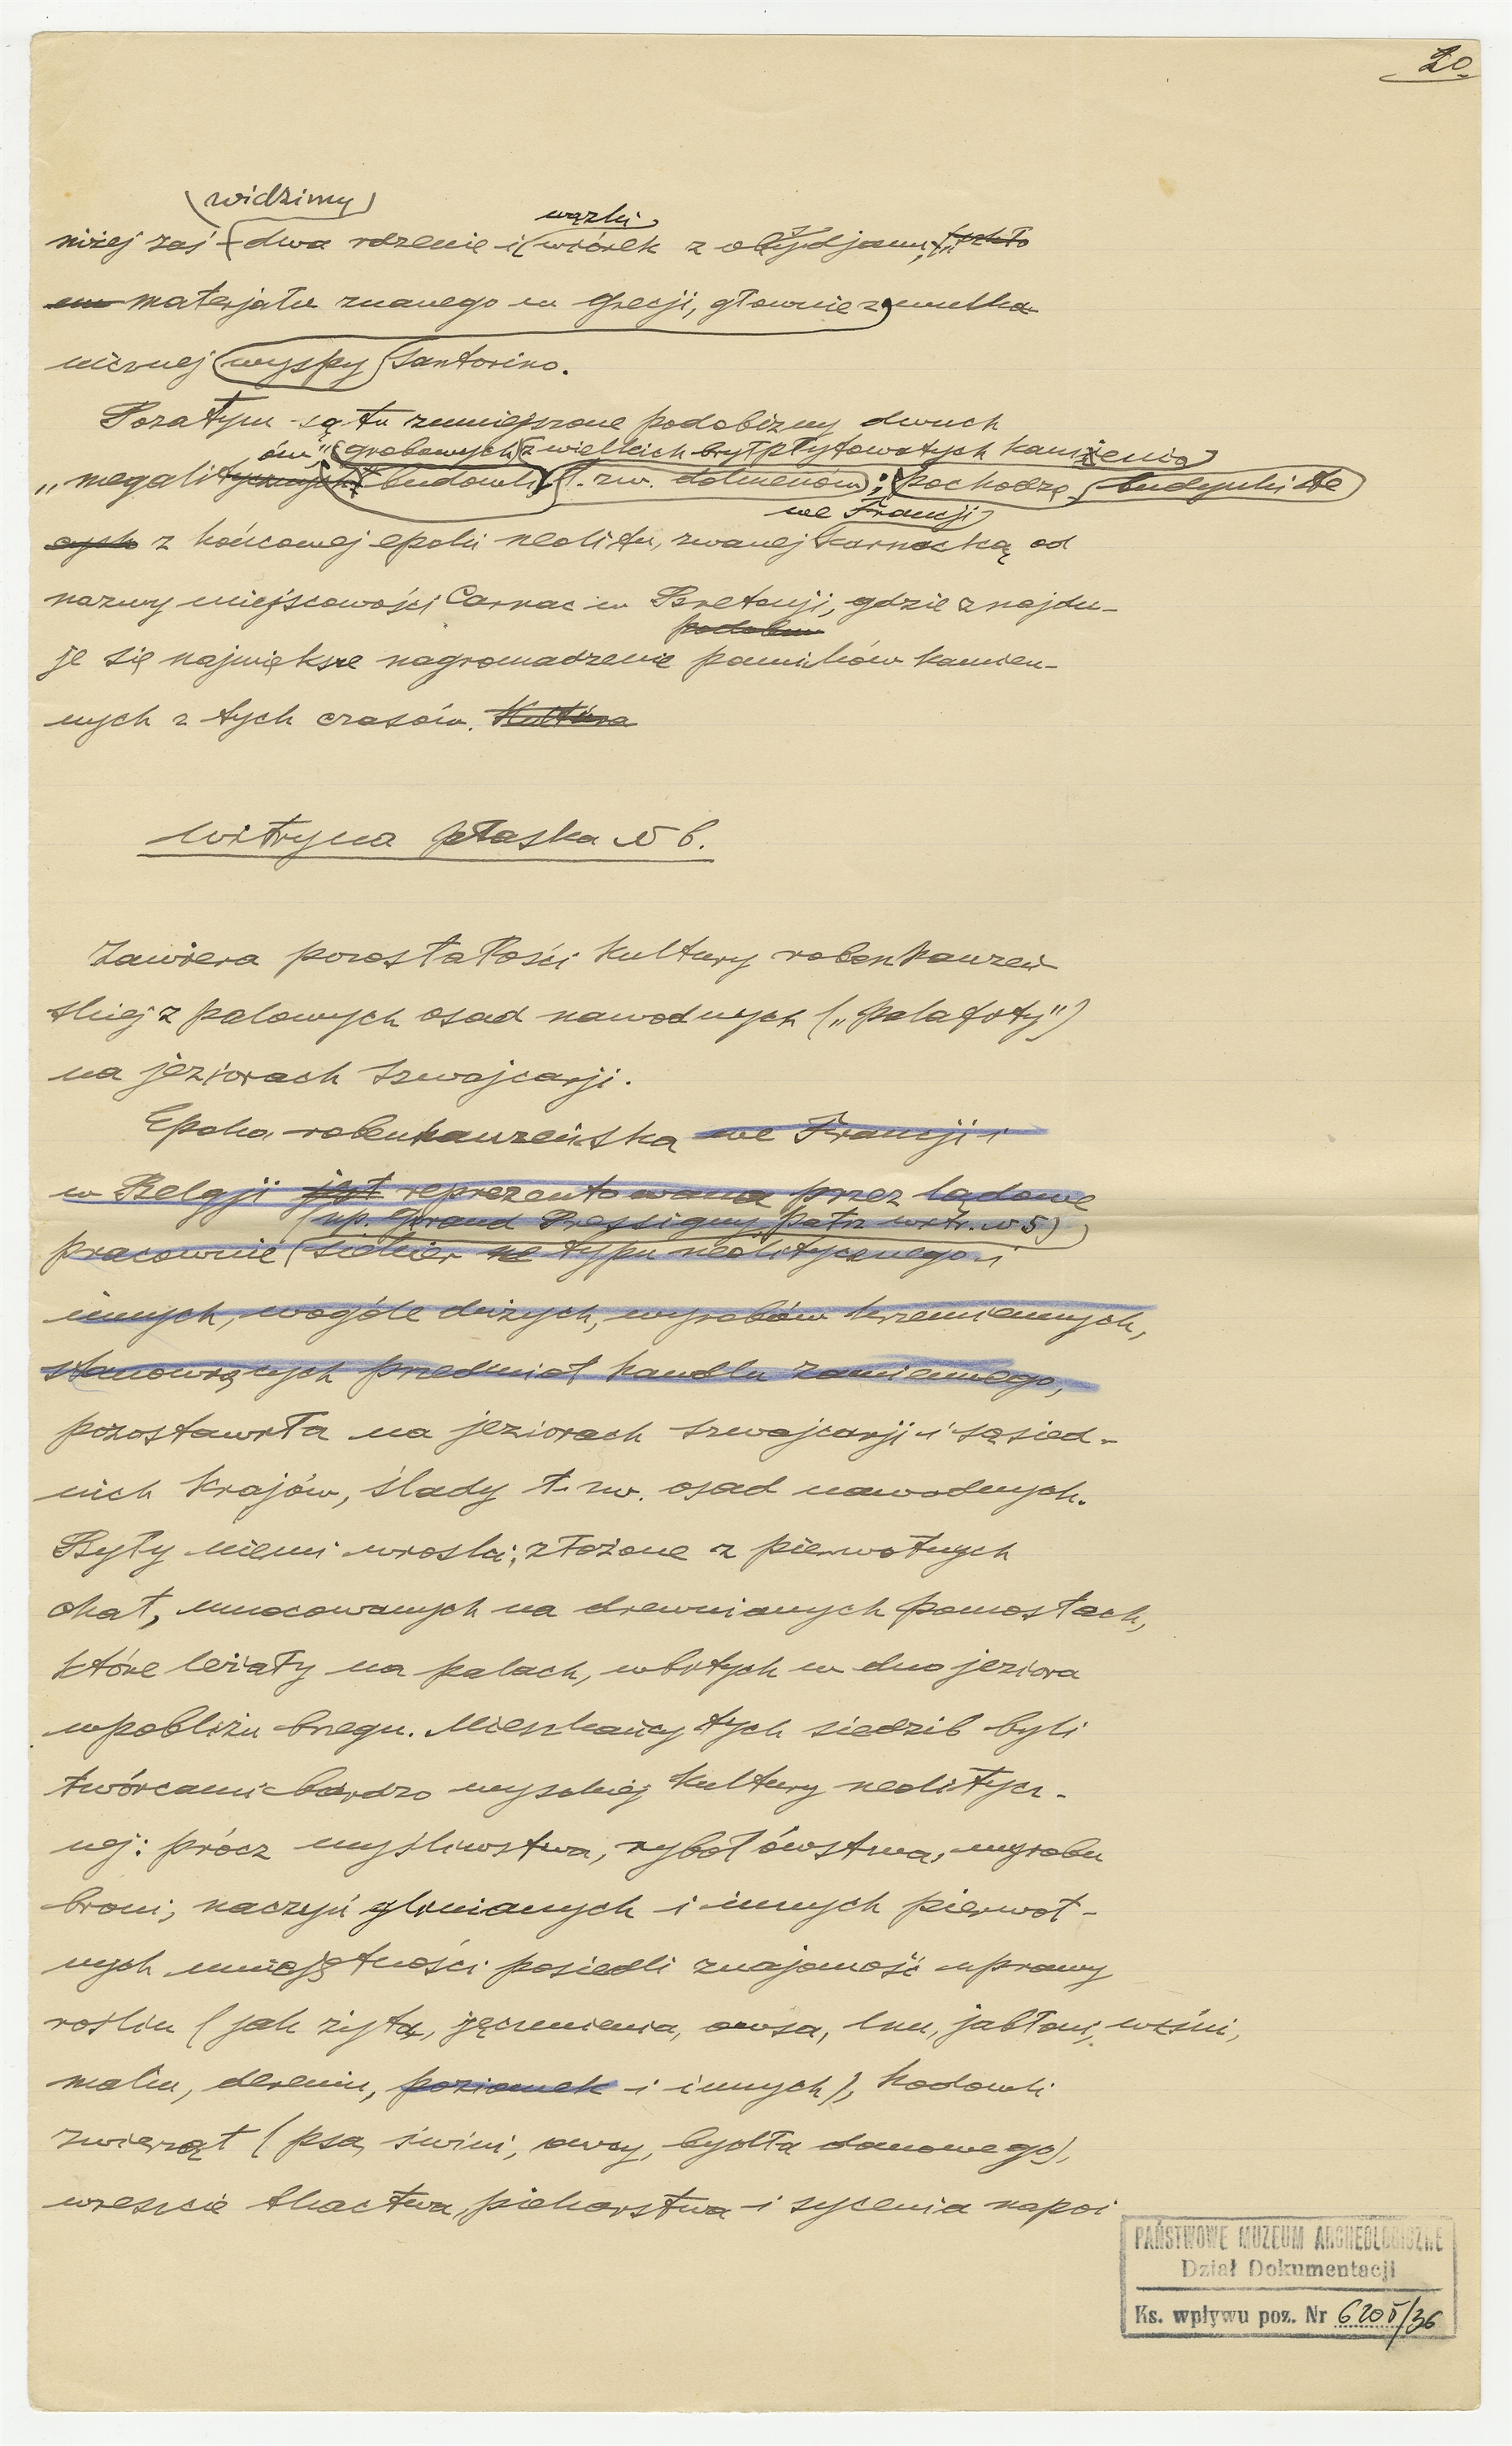 20
widzimy
wązki
niżej zaś dwa rdzenie i wiórek z obsydjanu,
materjału znanego w Grecji, głównie z wulka
nicznej wyspy Santorino.
Pozatym są tu zmniejszone podobizny dwuch
ów" grobowych z wielkich brył płytowatych kamienia
"megalitycznych budowli t. zw. dolmenów; pochodzą budynki te
we Francji
cych z końcowej epoki neolitu, zwanej karnacką od
nazwy miejscowości Carnac w Bretanji, gdzie znajdu-
podobn
je się największe nagromadzenie pomników kamien-
nych z tych czasów. Kultura
Witryna płaska N 6.
Zawiera pozostałości kultury robenhauzeń
skiej z palowych osad nawodnych ("palafity")
na jeziorach Szwajcarji.
Epoka robenhauzeńska we Francji i
w Belgji jest reprezentowana przez lądowe
(np. Grand Pressigny, patrz witr. N 5)
pracownie siekier typu neolitycznego i
innych, wogóle dużych, wyrobów krzemiennych,
stanowiących przedmiot handlu zamiennego,
pozostawiła na jeziorach Szwajcarji i sąsied-
nich krajów, ślady t. zw. osad nawodnych.
Były niemi wioski, złożone z pierwotnych
chat, umocowanych na drewnianych pomostach,
które leżały na palach, wbitych w dno jeziora
wpobliżu brzegu. Mieszkańcy tych siedzib byli
twórcami bardzo wysokiej kultury neolitycz-
nej: prócz myśliwstwa, rybołówstwa, wyrobu
broni, naczyń glinianych i innych pierwot-
nych umiejętności posiedli znajomość uprawy
roślin (jak żyta, jęczmienia, owsa, lnu, jabłoni, wiśni,
malin, dereniu, poziomek i innych), hodowli
zwierząt (psa, świni, owcy, bydła domowego),
wreszcie tkactwa, piekarstwa i sycenia napoi
PAŃSTWOWE MUZEUM ARCHEOLOGICZNE
Dział Dokumentacji
Ks. wpływu poz. Nr 6205/36